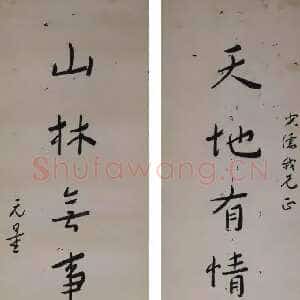 天地有情
儒我兄正
山林無事
元
Shufawang.CN